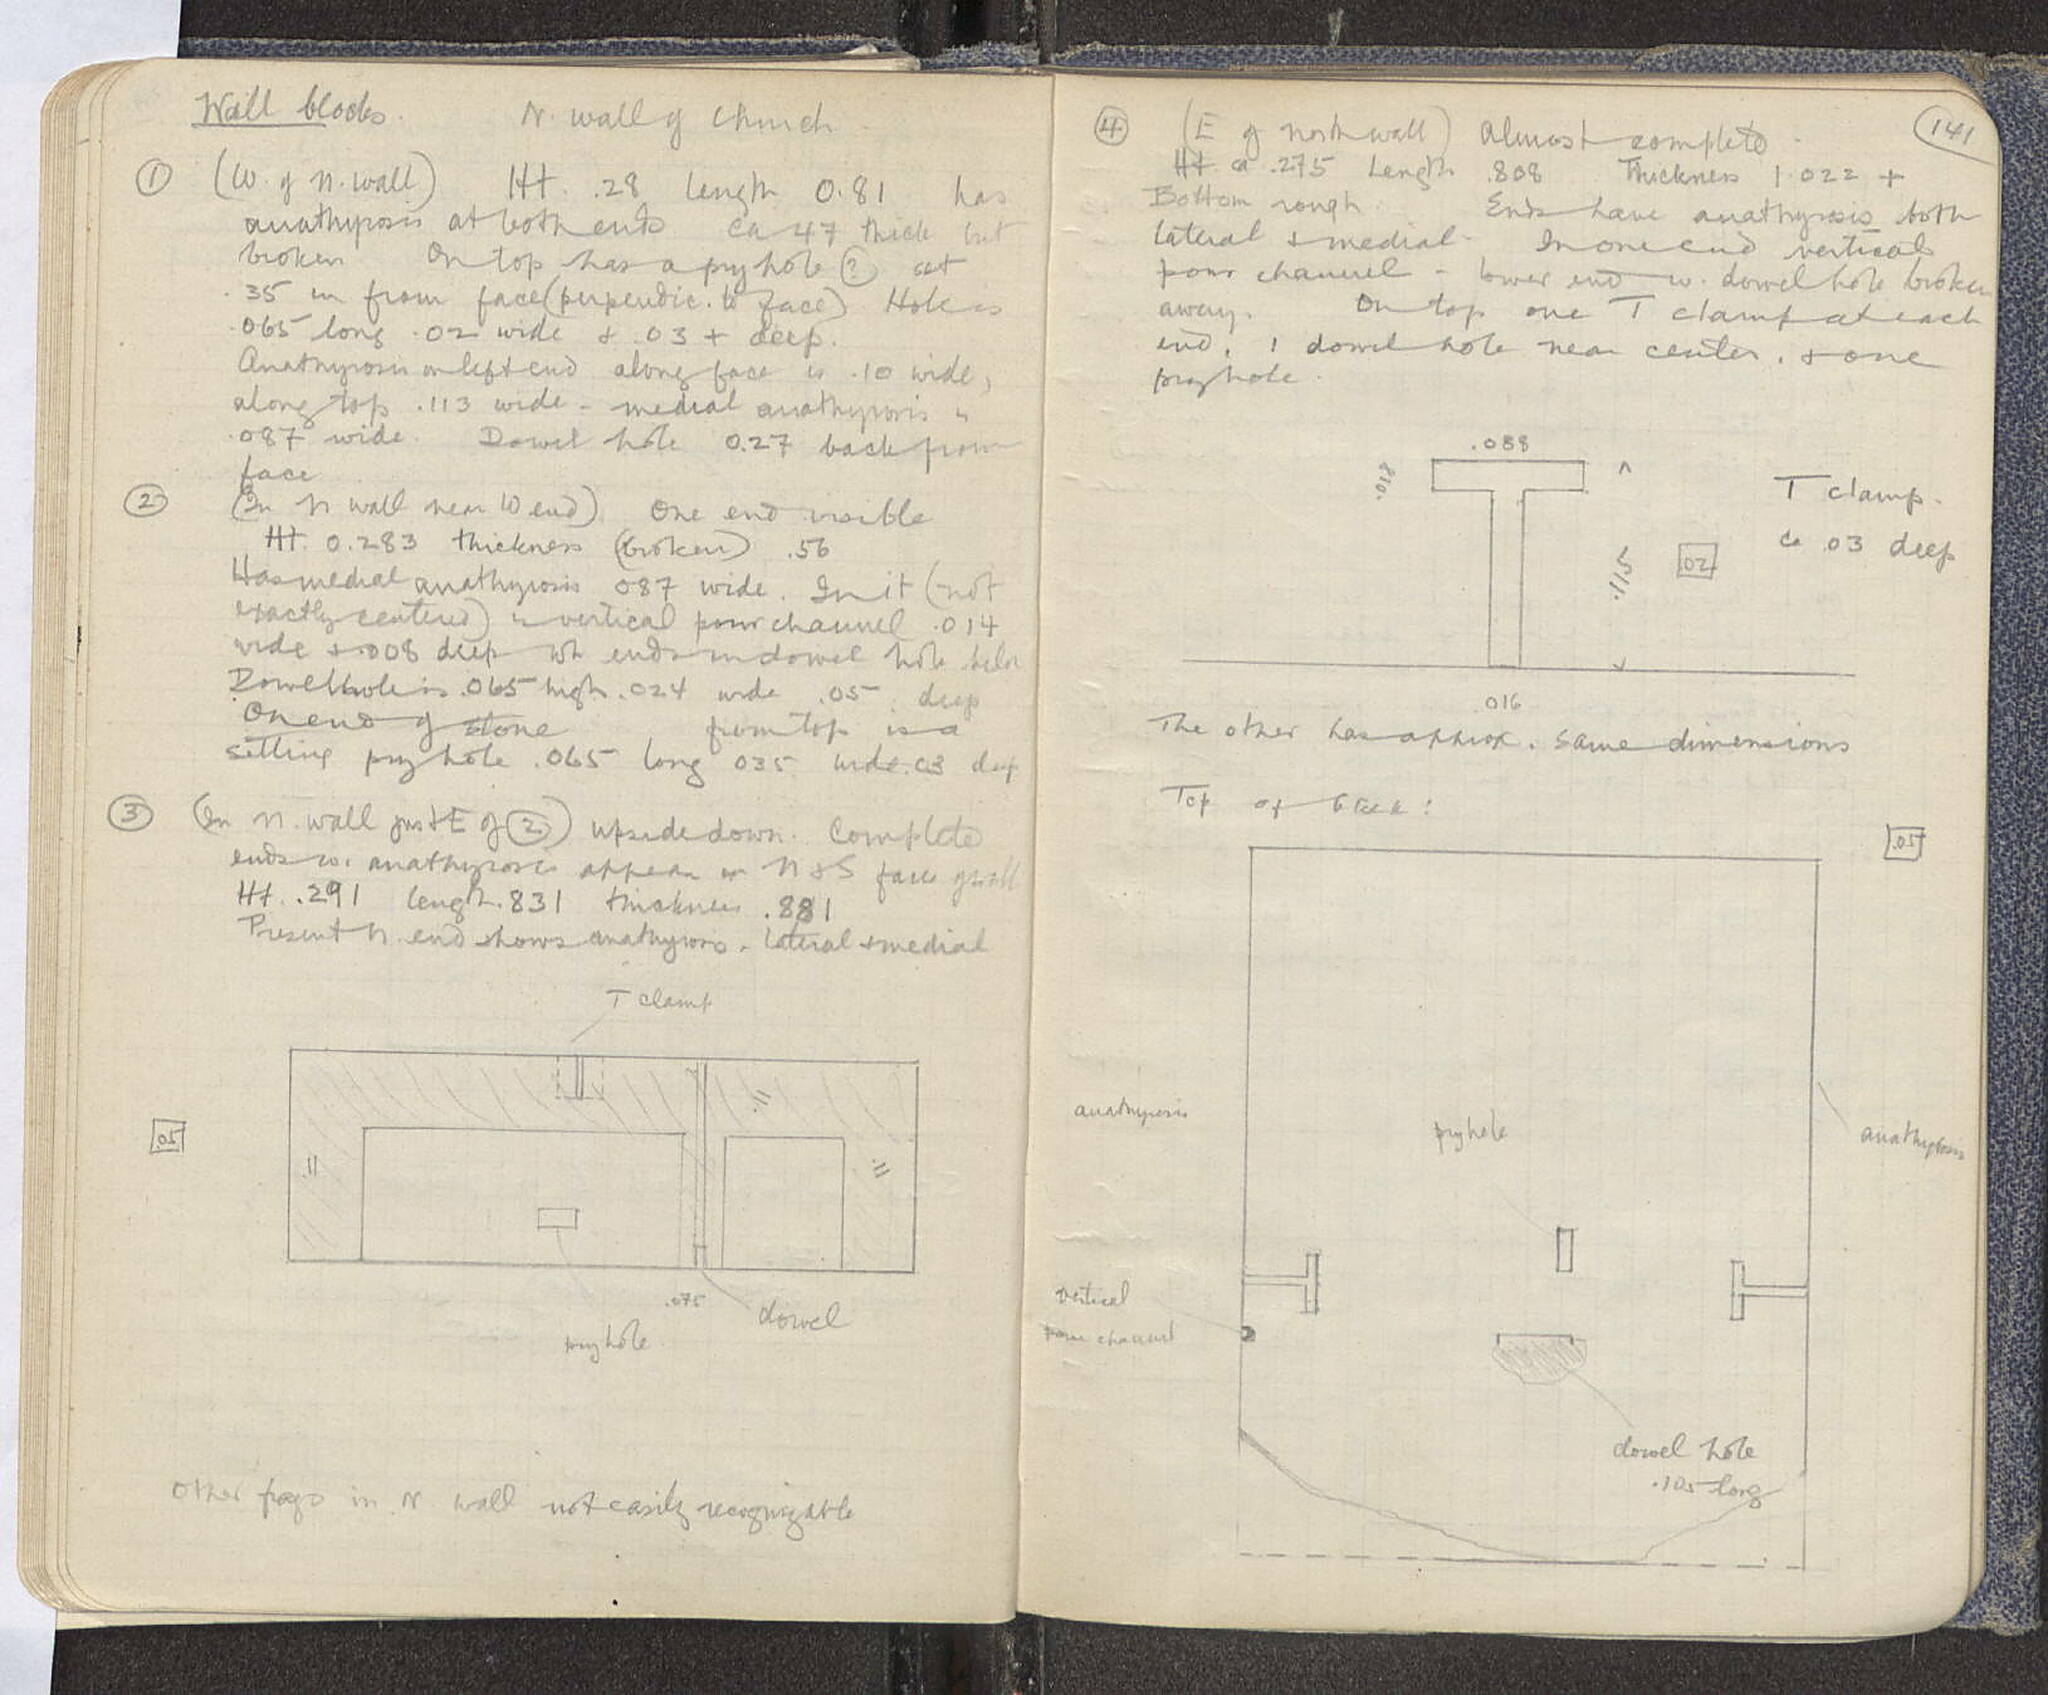 Wall blocks. N. wall of church.
① (W. of N. wall) Ht. .28 length 0.81 has
anathyrosis at both ends ca 47 thick but
broken On top has a pryhole (?) set
.35 m from face (perpendic. to face) Hole is
.065 long .02 wide + .03 + deep.
Anathyrosis on left end along face is .10 wide,
along top .113 wide - medial anathyrosis is
.087 wide. Dowel hole 0.27 back from
face
② (In N wall near W end) One end visible
Ht. 0.283 thickness (broken) .56
Has medial anathyrosis 087 wide. In it (not
exactly centered) is vertical pour channel .014
wide + .008 deep wh ends in dowel hole below
Dowel hole is .065 high .024 wide .05 deep
On end of stone from top is a
setting pry hole .065 long 035 wide .03 deep
③ (In N. wall just E of ②) upside down. Complete
ends w. anathyroses appear on N + S face of wall
Ht. .291 length .831 thickness .881
Present N. end shows anathyrosis - lateral + medial
T clamp
.11
.05
.11
.11
.075
dowel
pryhole
Other frags in N. wall not easily recognizable
141
④ (E of north wall) almost complete.
Ht ca .275 Length .808 Thickness 1.022 +
Bottom rough. Ends have anathyrosis both
lateral + medial. In one end vertical
pour channel - lower end w. dowel hole broken
away. On top one T clamp at each
end, 1 dowel hole near center, + one
pryhole.
.088
.018
T clamp.
ca .03 deep
.115
.02
.016
The other has approx. same dimensions
Top of block:
.05
anathyrosis
pryhole
anathyrosis
vertical
pour channel
dowel hole
.105 long